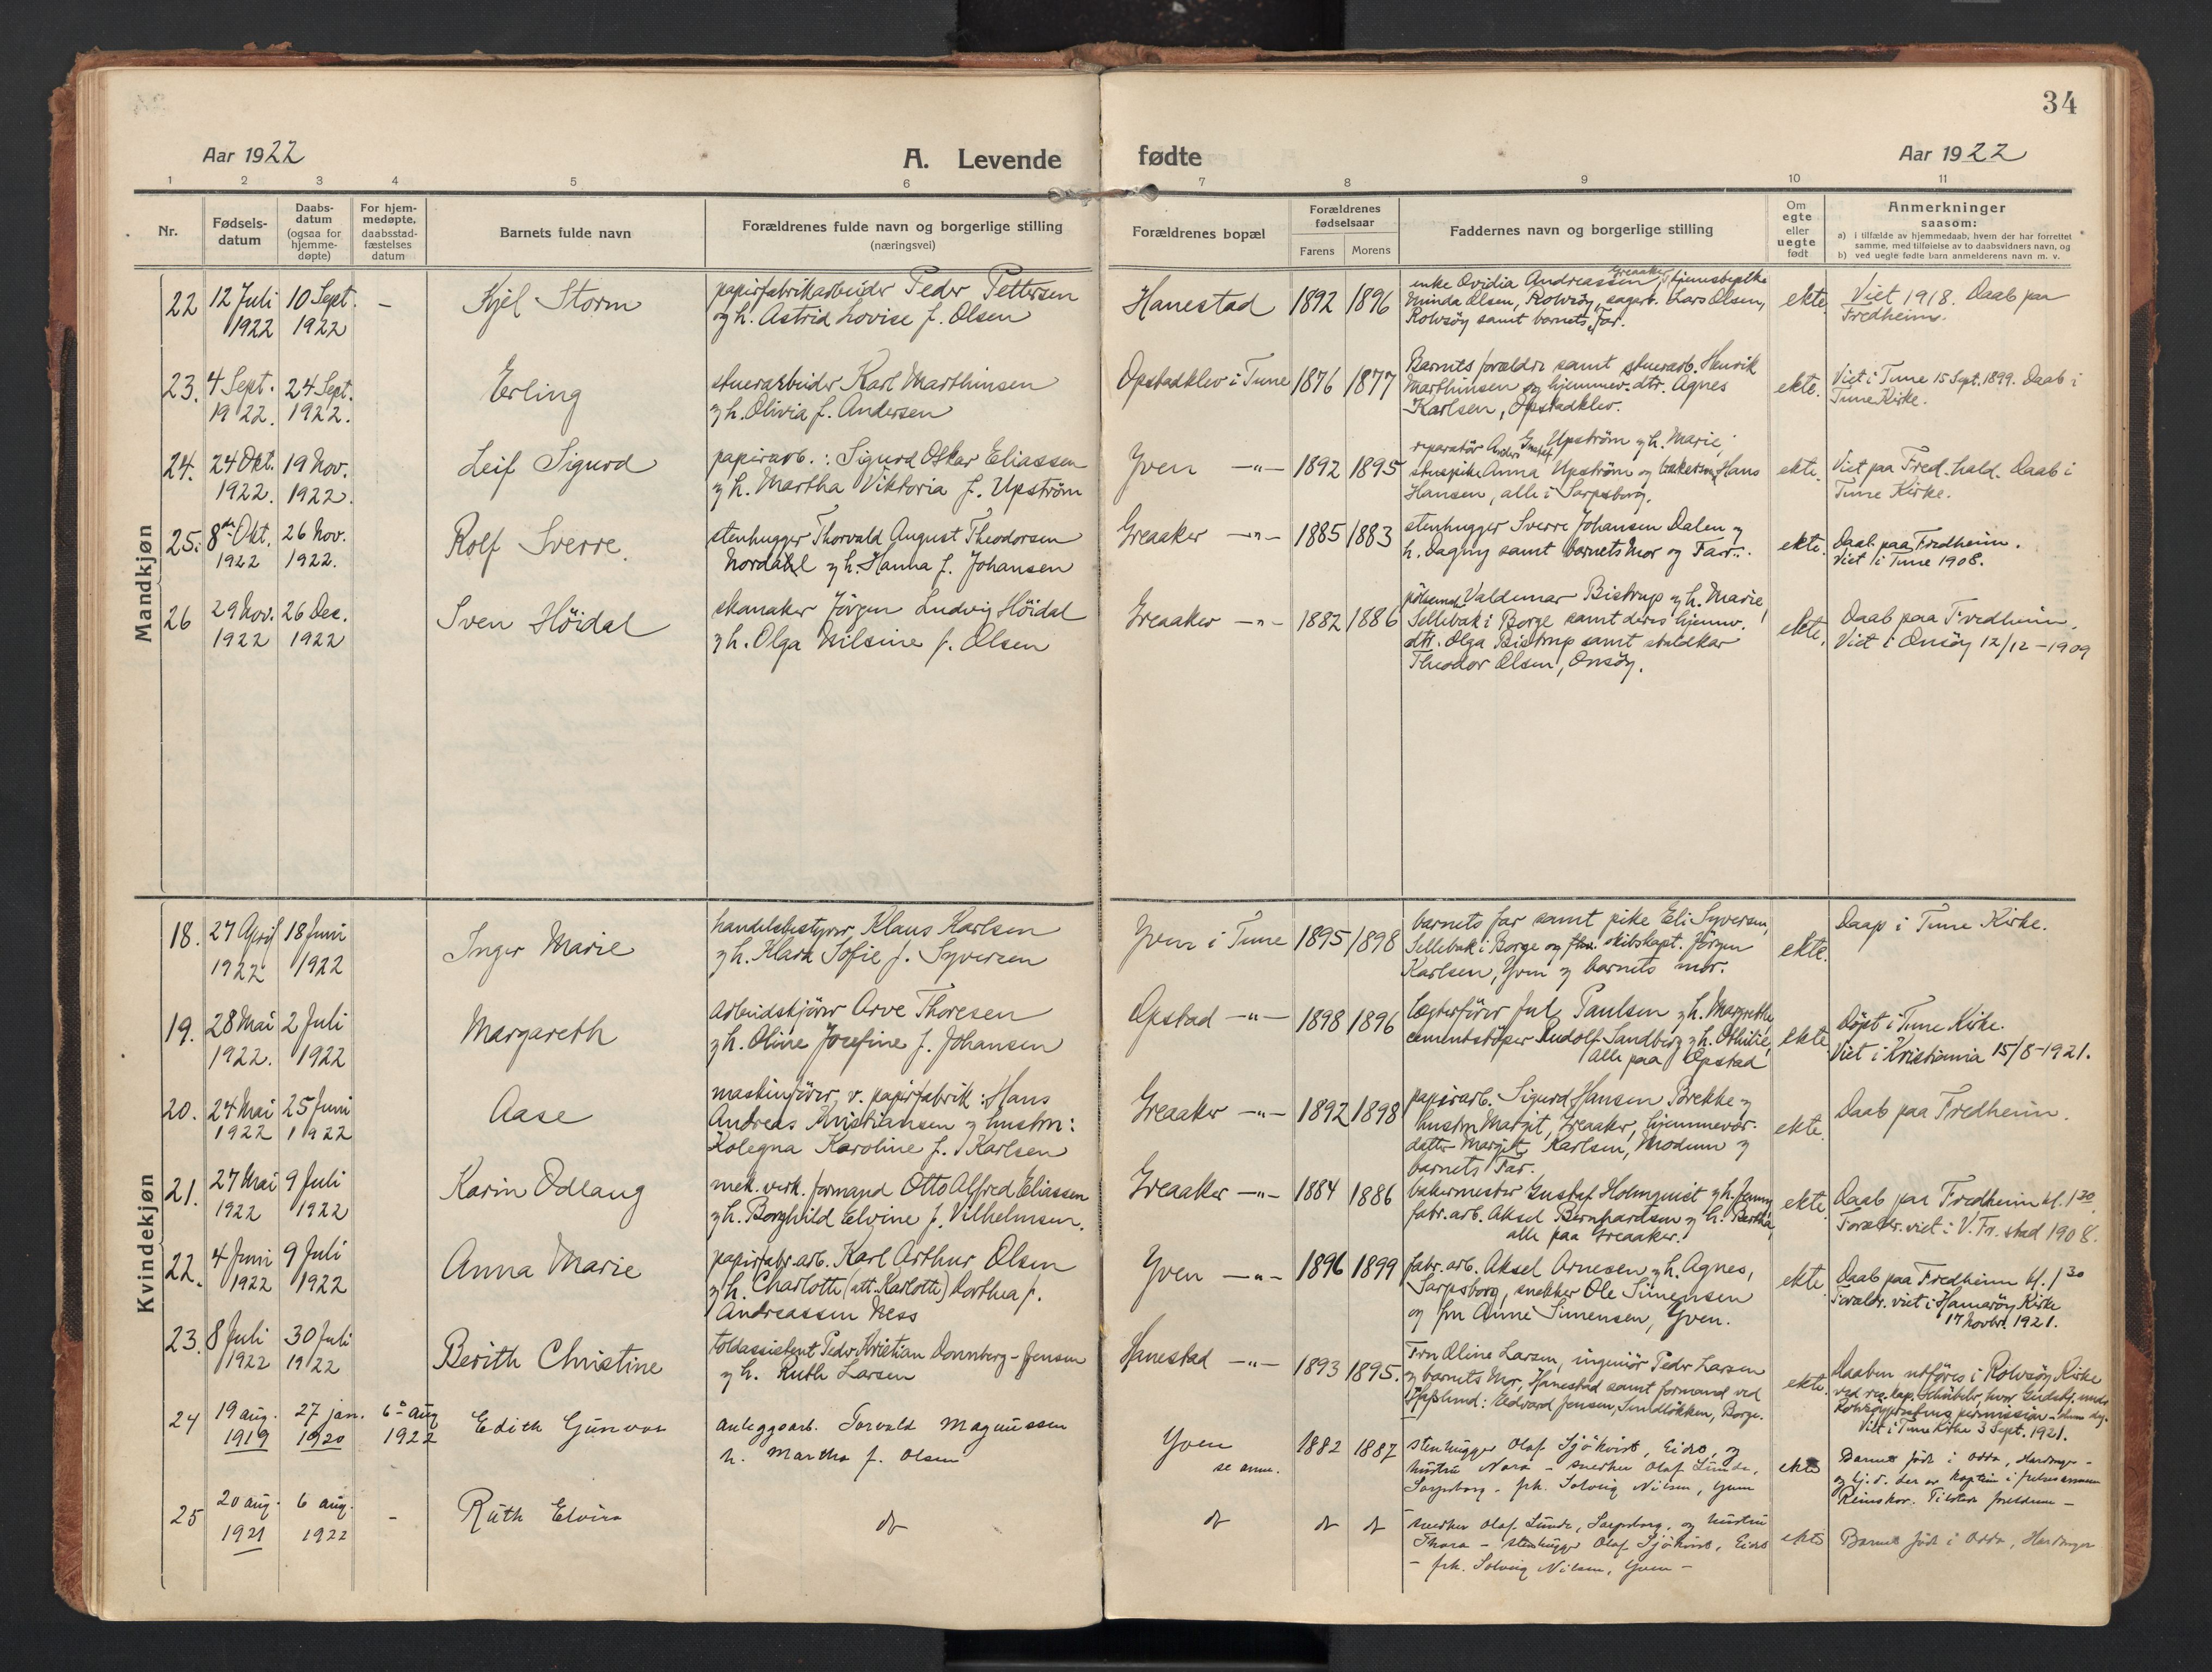 34
Aar 1922
A. Levende fødte
Aar 1922
1 2 3 4 5 6 7 8 9 10 11
Nr.
Fødsels-
datum
Daabs-
datum
(ogsaa for
hjemme-
døpte)
For hjem-
medøpte,
daabsstad-
fæstelses
datum
Barnets fulde navn
Forældrenes fulde navn og borgerlige stilling
(næringsvei)
Forældrenes bopæl
Forældrenes
fødselsaar
Farens Morens
Faddernes navn og borgerlige stilling
Om
egte
eller
uegte
født
Anmerkninger
saasom:
a) i tilfælde av hjemmedaab, hvem der har forrettet
samme, med tilføielse av to daabsvidners navn, og
b) ved uegte fødte barn anmelderens navn m. v.
Mandkjøn
22 12 Juli 1922
10 Sept. 1922
-
Kjel Storm
papirfabrikarbeider Peder Pettersen
og h. Astrid Lovise f. Olsen
Hanestad 1892 1896
enke Ovidia Andreassen, Greaaker,
Minda Olsen, Rolvsöy, sagarb. Lars Olsen,
Rolvsöy samt barnets Far.
ekte.
Viet 1918. Daab paa
Fredheim.
23. 4 Sept. 1922.
24 Sept. 1922.
Erling
stuerarbeider Karl Marthinsen
og h. Olivia f. Andersen
Opstadklev i Tune 1876 1877
Barnets forældre samt stuerarb. Henrik
Marthinsen og hjemmev. dtr. Agnes
Karlsen, Opstadklev.
ekte.
Viet i Tune 15 Sept. 1899. Daab i
Tune Kirke.
24. 24 Okt. 1922.
19 Nov. 1922.
Leif Sigurd
papirarb.: Sigurd Oskar Eliassen
og h. Martha Viktoria f. Upström
Yven —"— 1892 1895
reparatör Anders Gustaf Upström og h. Marie,
stuepike Anna Upström og bakersv. Hans
Hansen, alle i Sarpsborg.
ekte
Viet paa Fred. hald. Daab i
Tune Kirke.
25. 8de Okt. 1922
26 Nov. 1922.
Rolf Sverre.
stenhugger Thorvald August Theodorsen
Nordahl og h. Hanna f. Johansen
Greaaker —"— 1885 1883
stenhugger Sverre Johansen Dalen og
h. Dagny samt barnets Mor og Far.
ekte.
Daab paa Fredheim.
Viet i Tune 1908.
26 29 Nov. 1922
26 Dec. 1922
Sven Höidal
skomaker Jörgen Ludvig Höidal
og h. Olga Nilsine f. Olsen
Greaaker —"— 1882 1886
pölsem. Valdemar Bistrup og h. Marie,
Sellebak i Borge samt deres hjemv.
dtr. Olga Bistrup samt staldkar
Theodor Olsen, Onsöy.
ekte.
Daab paa Fredheim.
Viet i Onsöy 12/12 - 1909
Kvindekjøn
18. 27 April 1922
18 Juni 1922
Inger Marie
handelsbestyrer Klaus Karlsen
og h. Klara Sofie f. Syversen
Yven i Tune 1895 1898
barnets far samt pike Eli Syversen,
Sellebak i Borge og skibskapt. Jörgen
Karlsen, Yven og barnets mor.
ekte.
Daap i Tune Kirke.
19. 28 Mai 1922.
2 Juli 1922
Margareth
Arbeidskjörer Arve Thoresen
og h. Oline Josefine f. Johansen
Opstad —"— 1898 1896
lægterförer Jul. Paulsen og h. Margrethe,
cementstöper Rudolf Sandberg og h. Othilie,
Alle paa Opstad
ekte
Döpt i Tune Kirke.
Viet i Kristiania 15/8 - 1921.
20. 24 Mai 1922
25 Juni 1922
Aase
maskinförer v. papirfabrik: Hans
Andreas Kristiansen og hustru:
Kolegna Karoline f. Karlsen
Greaaker —"— 1892 1898
papirarb. Sigurd Hansen Brekke og
hustru Margit, Greaaker, hjemmevær.
datter Margit Karlsen, Modum og
barnets Far.
ekte.
Daab paa Fredheim.
21. 27 Mai 1922
9 Juli 1922
Karin Odlaug
mek. verk. formand Otto Alfred Eliassen
og h. Borghild Elvine f. Vilhelmsen.
Greaaker —"— 1884 1886
bakermester Gustaf Holmquist og h. Jenny,
fabr. arb. Aksel Bernhardsen og h. Bertha,
alle paa Greaaker.
ekte
Daab paa Fredheim kl. 1 30.
Forældr. viet i V. Fr. stad 1908.
22. 4 Juni 1922
9 Juli 1922
Anna Marie
papirfabr. arb. Karl Arthur Olsen
og h. Charlotte (att. Karlotte) Dorthea f.
Andreassen Ness
Yven —"— 1896 1899
fabr. arb. Aksel Arnesen og h. Agnes,
Sarpsborg, snekker Ole Simensen
og fru Anne Simensen, Yven.
ekte
Daab paa Fredheim kl. 1 30
Forældr. viet i Hamaröy Kirke
17 Novbr. 1921.
23. 8 Juli 1922
30 Juli 1922
Berith Christine
toldassistent Peder Kristian Donnberg-Jensen
og h. Ruth Larsen
Hanestad —"— 1893 1895.
Fru Oline Larsen, ingeniör Peder Larsen
og barnets Mor, Hanestad samt formand ved
Hafslund: Edvard Jensen, Sundlökken, Borge.
ekte.
Daaben utföres i Rolvsöy Kirke
ved res. kap.
Viet i Tune Kirke 3 Sept. 1921.
24 19 aug. 1919
27 jan. 1920
6te aug 1922
Edith Gunvor
anleggsarb. Torvald Magnussen
h. Martha f. Olsen
Yven
se anm.
1882 1887
stenhugger Olaf Sjökvist, Eidet, og
hustru Nora - snedker Olaf Lunde,
Sarpsborg - frk. Solveig Nilsen, Yven
ekte
Barnet födt i Odda, Hardanger -
og hj. d. der av kaptein i frelsesarmeen
25 20 aug. 1921
6 aug. 1922
-
Ruth Elvira
do
do
do do
snedker Olaf Lunde, Sarpsborg, og hustru
Thora - stenhugger Olaf Sjökvist, Eidet
- frk. Solveig Nilsen, Yven -
ekte
Barnet födt i Odda, Hardanger